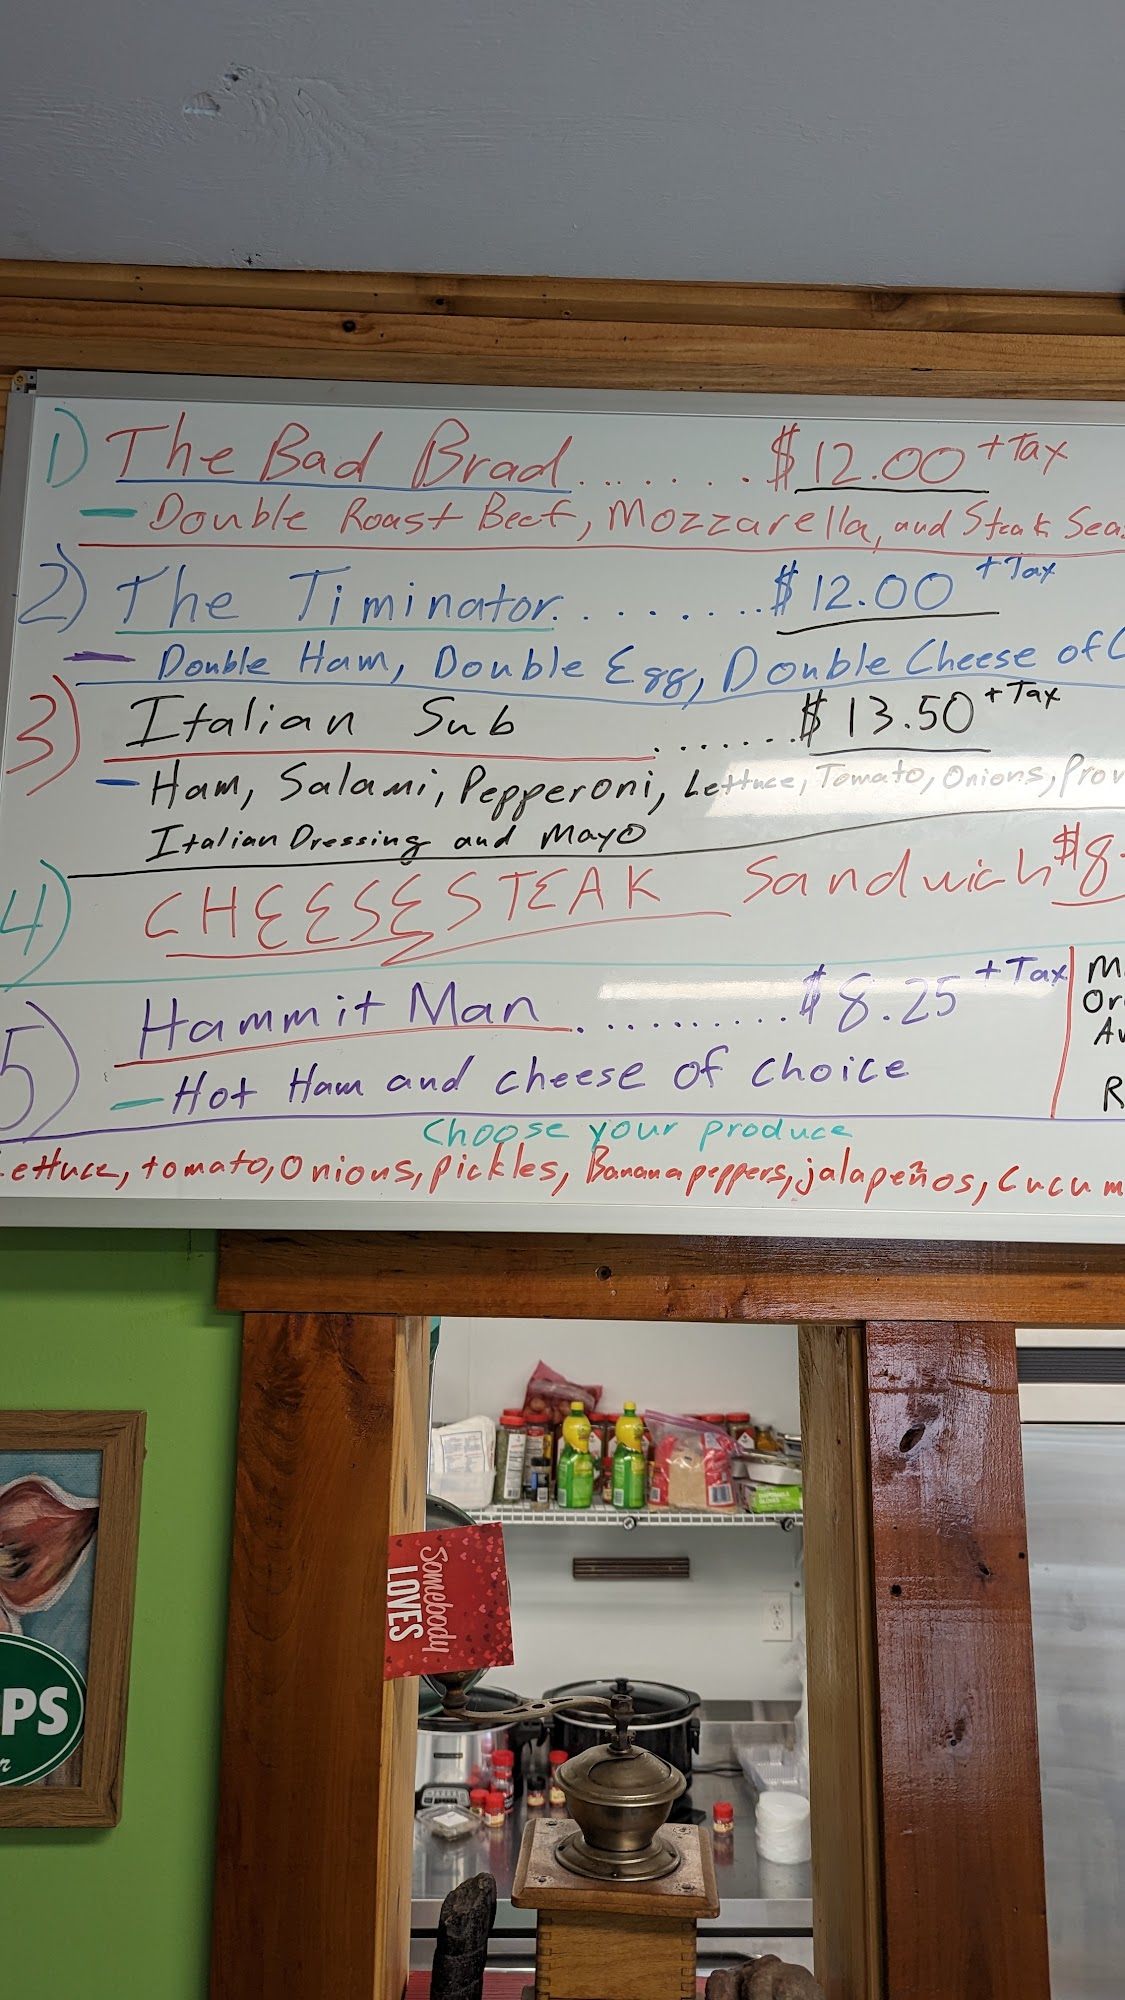 1) The Bad Brad ........ $12.00 + Tax
- Double Roast Beef, Mozzarella, and Steak Sea
2) The Timinator ........ $12.00 + Tax
- Double Ham, Double Egg, Double Cheese of C
3) Italian Sub ....... $13.50 + Tax
- Ham, Salami, Pepperoni, Lettuce, Tomato, Onions, Prov
Italian Dressing and Mayo
4) CHEESESTEAK Sandwich $8.
5) Hammit Man .......... $8.25 + Tax
- Hot Ham and cheese of choice
M
Or
Av
R
Choose your produce
Lettuce, tomato, Onions, pickles, Banana peppers, jalapeños, Cucum
Somebody
LOVES
PS